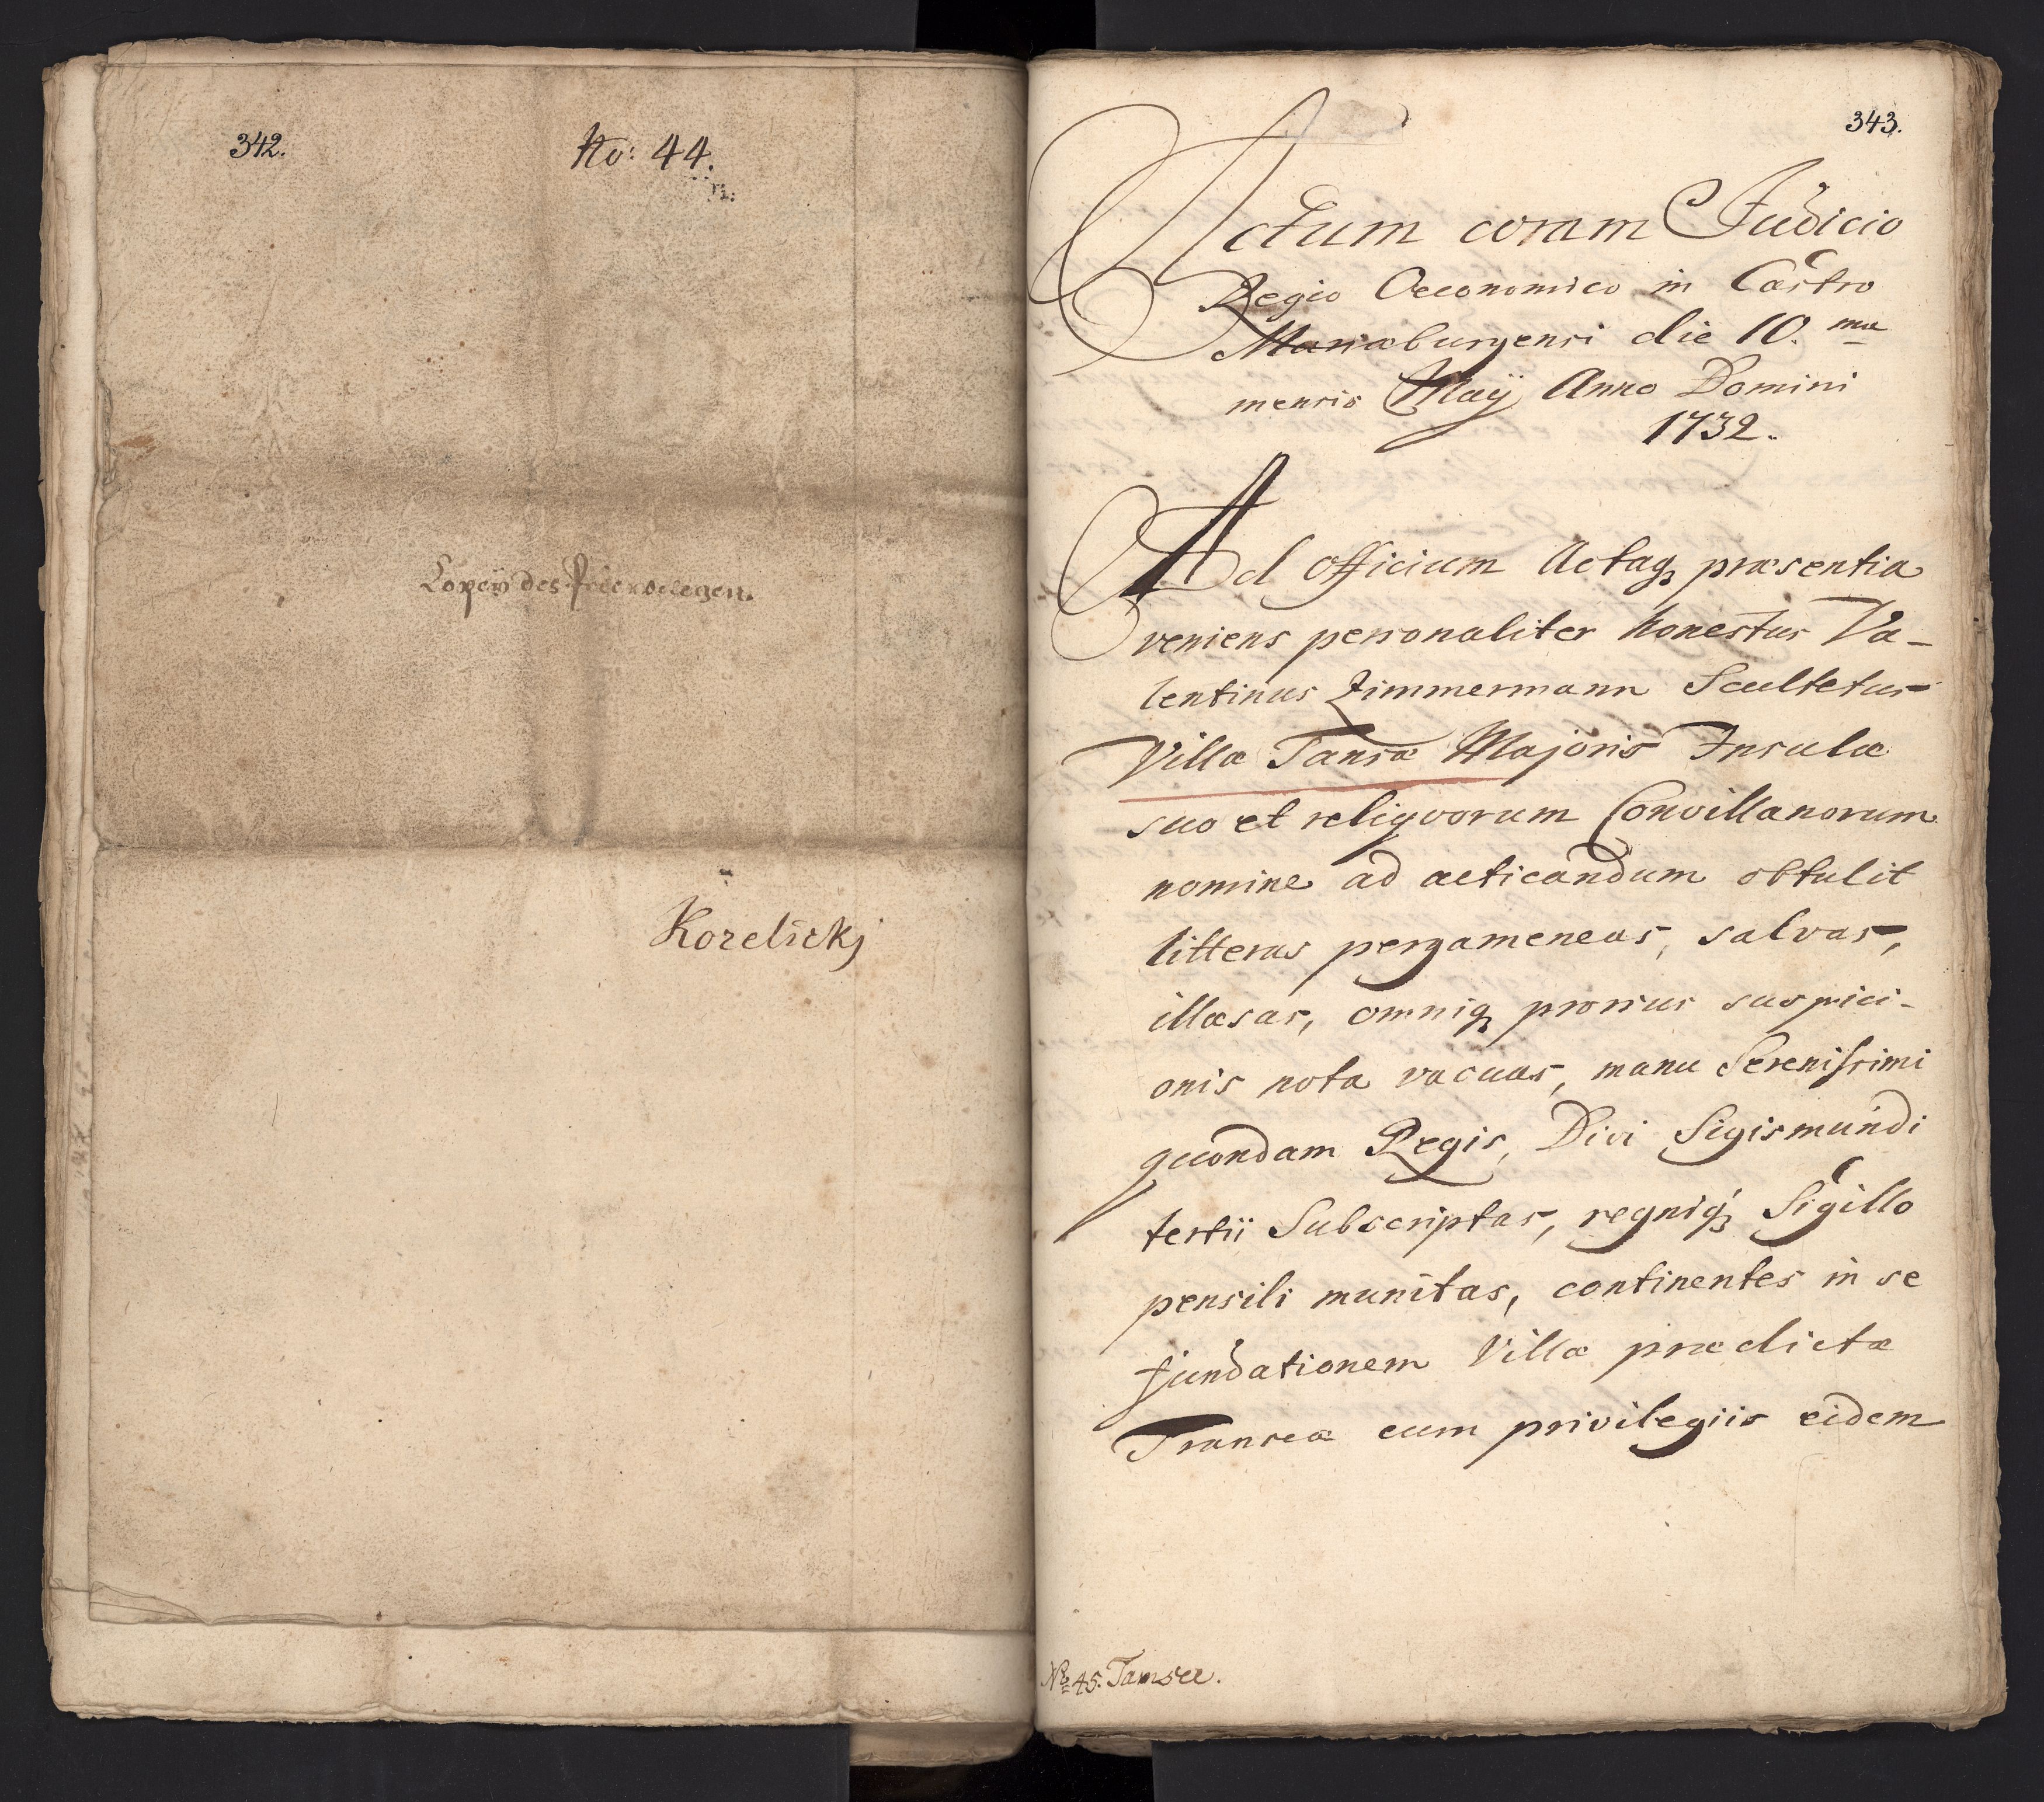 342.
No: 44.
Copeÿ des Priewelegen.
Korelickj
343.
Actum coram Judicio
Regio Oeconomico in Castro
Mariæburgensi die 10. ma
mensis Maÿ Anno Domini
1732.
Ad Officium Actaq præsentia
veniens personaliter honestus Va-
lentinus Zimmermann Scultetus
Villæ Tansæ Majoris Insulæ
suo et reliqvorum Convillanorum
nomine ad acticandum obtulit
litteras pergameneas, salvas,
illæsas, omniq prorsus suspici-
onis nota vacuas, manu Serenissimi
quondam Regis, Divi Sigismundi
tertii Subscriptas, regniq Sigillo
pensili munitas, continentes in se
fundationem Villæ prædictæ
Transeæ cum privilegiis eidem
No 45. Tamsee.